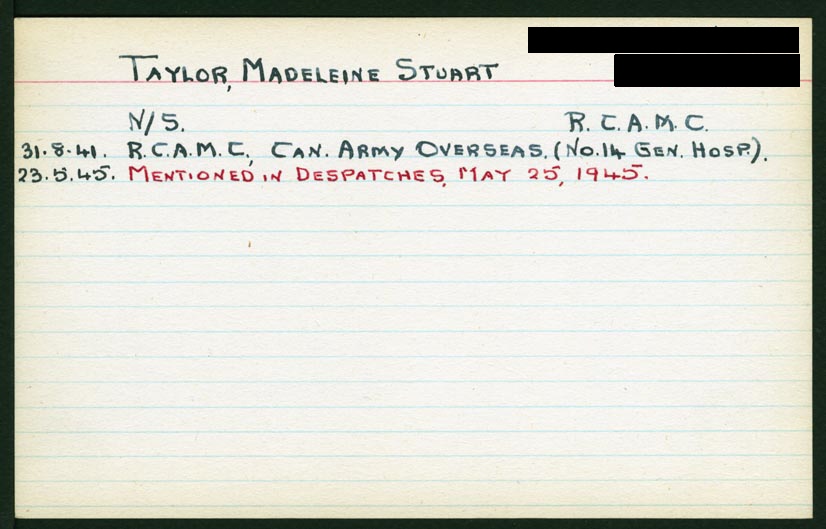 TAYLOR, MADELEINE STUART
N/S. R.C.A.M.C.
31.8.41. R.C.A.M.C., CAN. ARMY OVERSEAS. (NO.14 GEN. HOSP.).
23.5.45. MENTIONED IN DESPATCHES, MAY 25, 1945.